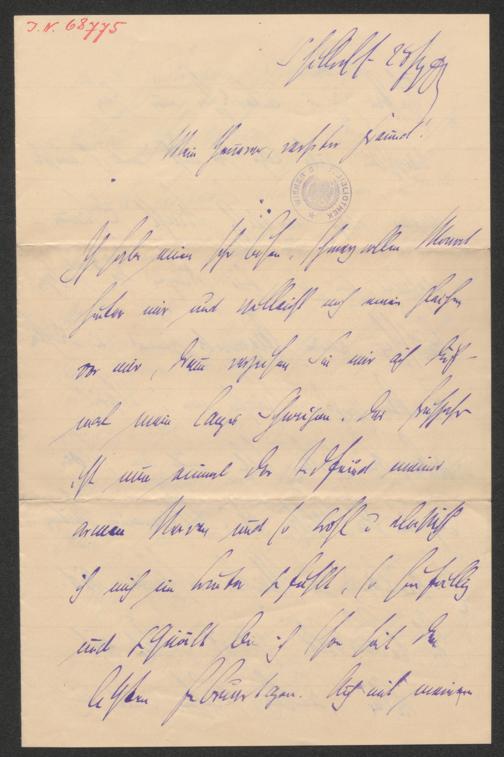 J. N. 68775
Mein theurer, verehrter Freund!
WIENER STADTBIBLIOTHEK
Ich habe einen sehr bösen, schmerzvollen Monat
hinter mir und vielleicht noch einen gleichen
vor mir, drum verzeihen Sie mir auch dies-
mal mein langes Schweigen. Das Frühjahr
ist nun einmal der Todfeind meiner
armen Nerven und so wohl u elastisch
ich mich im Winter gefühlt, so hinfällig
und gequält bin ich schon seit den
letzten Februartagen. Auch mit meinen